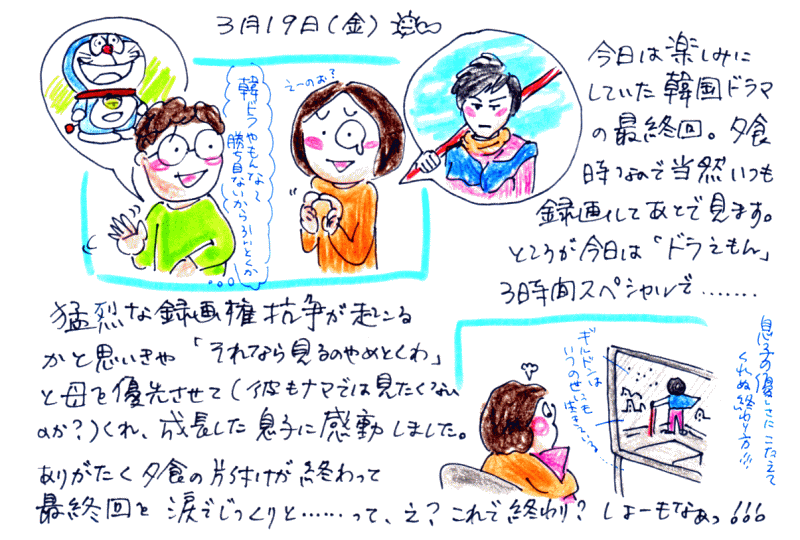 3月19日(金)
今日は楽しみに
していた韓国ドラマ
の最終回。夕食
時なので当然いつも
録画してあとで見ます。
ところが今日は「ドラえもん」
3時間スペシャルで………
韓ドラやもんなぁ〜
勝ち目ないから引いとくか
えーのぉ?
猛烈な録画権抗争が起こる
かと思いきや「それなら見るのやめとくわ」
と母を優先させて(彼もナマでは見たくない
のか?)くれ、成長した息子に感動しました。
ありがたく夕食の片付けが終わって
最終回を涙でじっくりと……って、え?これで終わり?しょーもなぁっ!!!
ギルドンは
いつのせいも
息子の優しさにこたえて
くれぬ終わり方!!!